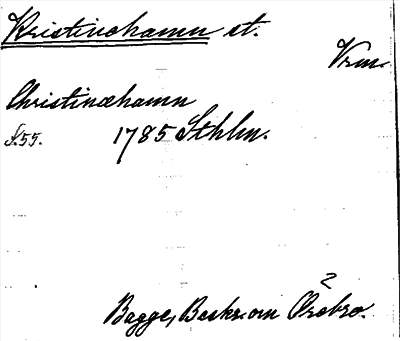 Kristinehamn st.
Vrm.
Christinæhamn
S. 55. 1785 Sthlm.
2
Bagge, Beskr. om Örebro.